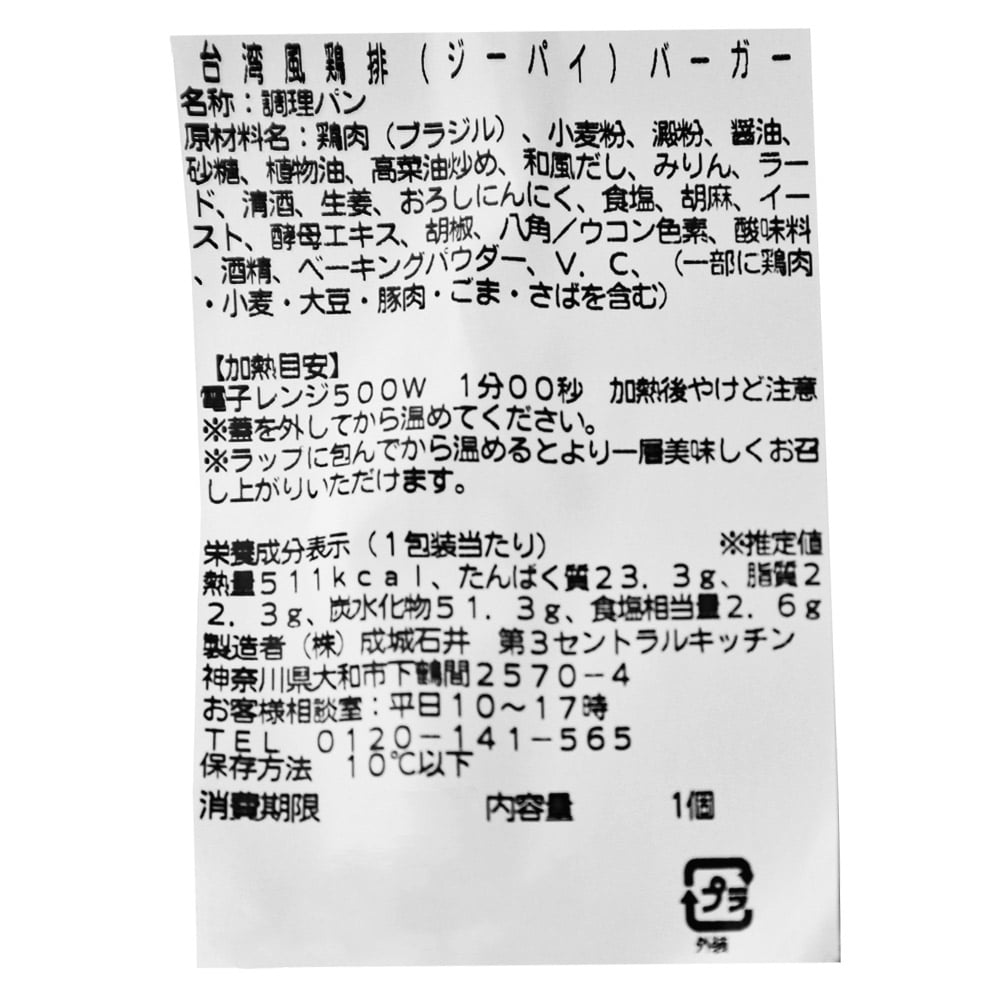 台湾風鶏排(ジーパイ)バーガー
名称:調理パン
原材料名:鶏肉(ブラジル)、小麦粉、澱粉、醤油、
砂糖、植物油、高菜油炒め、和風だし、みりん、ラー
ド、清酒、生姜、おろしにんにく、食塩、胡麻、イー
スト、酵母エキス、胡椒、八角/ウコン色素、酸味料
、酒精、ベーキングパウダー、V.C、(一部に鶏肉
・小麦・大豆・豚肉・ごま・さばを含む)
【加熱目安】
電子レンジ500W 1分00秒 加熱後やけど注意
※蓋を外してから温めてください。
※ラップに包んでから温めるとより一層美味しくお召
し上がりいただけます。
栄養成分表示(1包装当たり) ※推定値
熱量511kcal、たんぱく質23.3g、脂質2
2.3g、炭水化物51.3g、食塩相当量2.6g
製造者(株)成城石井 第3セントラルキッチン
神奈川県大和市下鶴間2570-4
お客様相談室:平日10～17時
TEL 0120-141-565
保存方法 10℃以下
消費期限 内容量 1個
プラ
外装